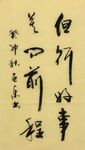 但行好事
莫问前程
癸卯秋